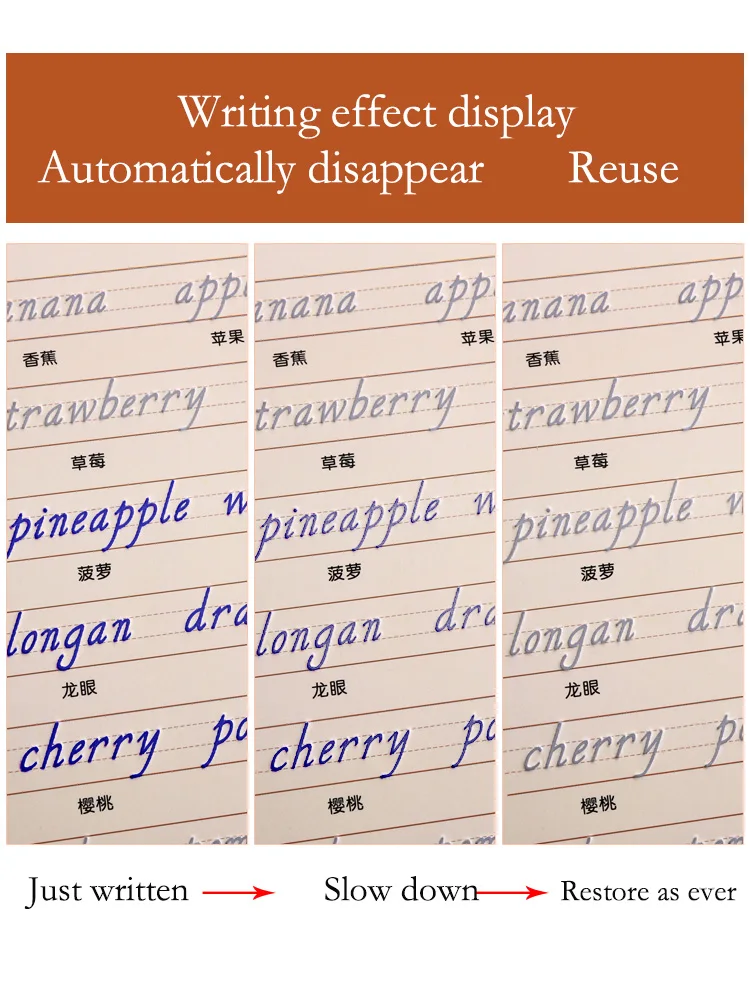 Writing effect display
Automatically disappear Reuse
anana app
苹果
香蕉
trawberry
草莓
pineapple w
菠萝
longan dra
龙眼
cherry po
樱桃
anana app
苹果
香蕉
trawberry
草莓
pineapple w
菠萝
longan dra
龙眼
cherry po
樱桃
anana app
苹果
香蕉
trawberry
草莓
pineapple w
菠萝
longan dra
龙眼
cherry po
樱桃
Just written
Slow down
Restore as ever